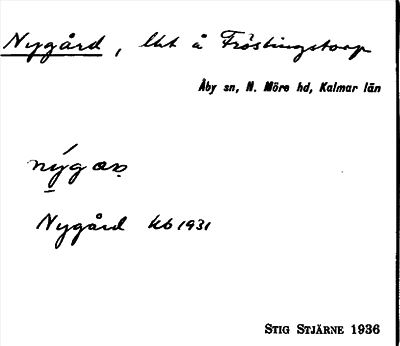 Nygård, lht å Fröslingstorp
Åby sn, N. Möre hd, Kalmar län
Nygård kb 1931
STIG STJÄRNE 1936